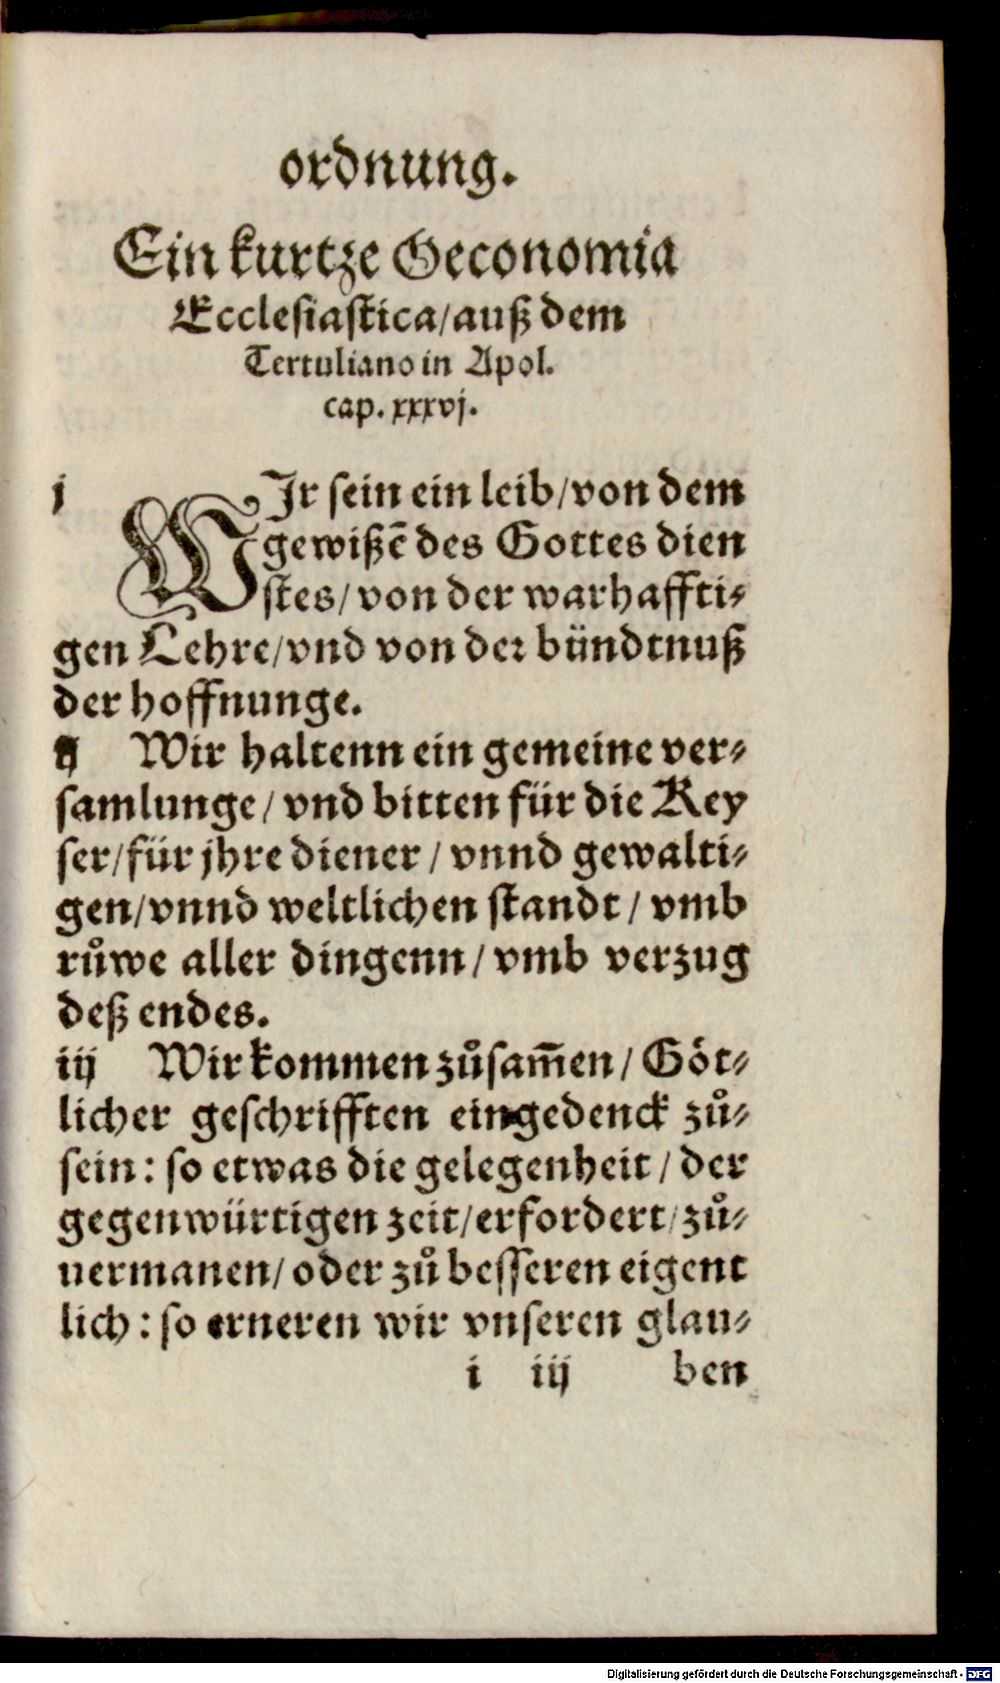 ordnung.
Ein kurtze Oeconomia
Ecclesiastica/auß dem
Tertuliano in Apol.
cap. xxxvj.
j WIr sein ein leib/von dem
gewißē des Gottes dien
stes/von der warhaffti⸗
gen Lehre/vnd von der bündtnuß
der hoffnunge.
ij Wir haltenn ein gemeine ver⸗
samlunge/vnd bitten für die Key
ser/für jhre diener/vnnd gewalti⸗
gen/vnnd weltlichen standt/vmb
růwe aller dingenn/vmb verzug
deß endes.
iij Wir kommen zůsam̄en/Göt⸗
licher geschrifften eingedenck zů⸗
sein: so etwas die gelegenheit/der
gegenwürtigen zeit/erfordert/zů⸗
uermanen/oder zů besseren eigent
lich: so erneren wir vnseren glau⸗
i iij ben
Digitalisierung gefördert durch die Deutsche Forschungsgemeinschaft - DFG